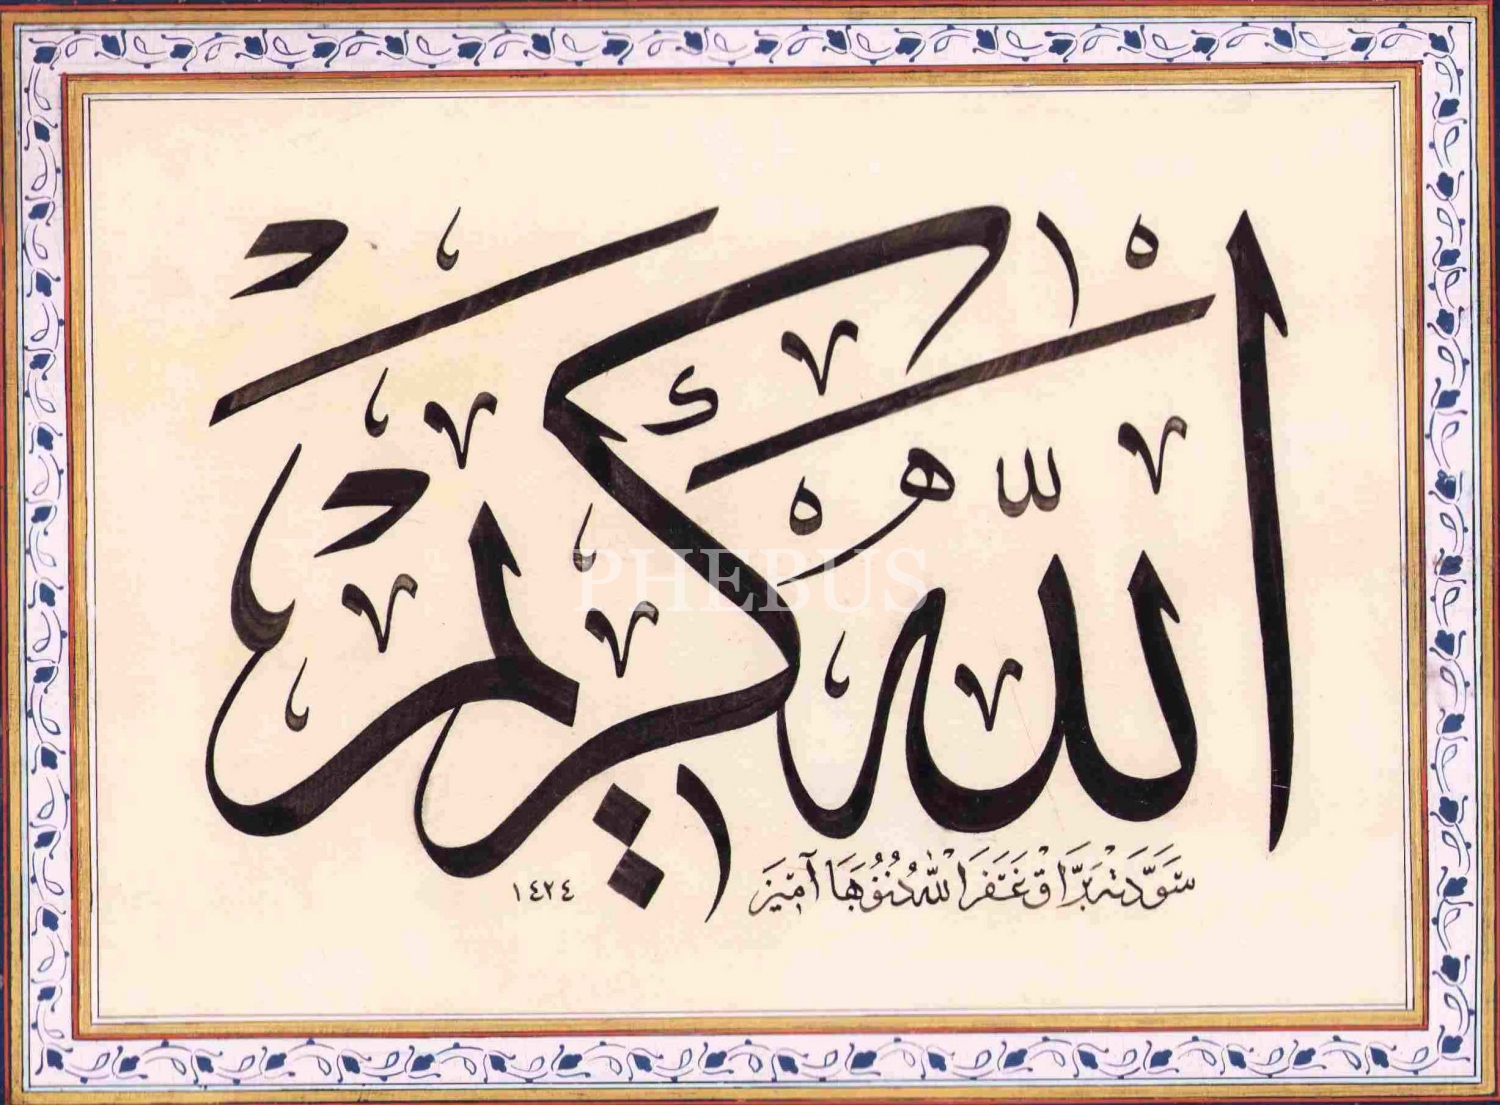 الله كريم
سودته براق غفر الله ذنوبها آمين
١٤٢٤
PHEBUS